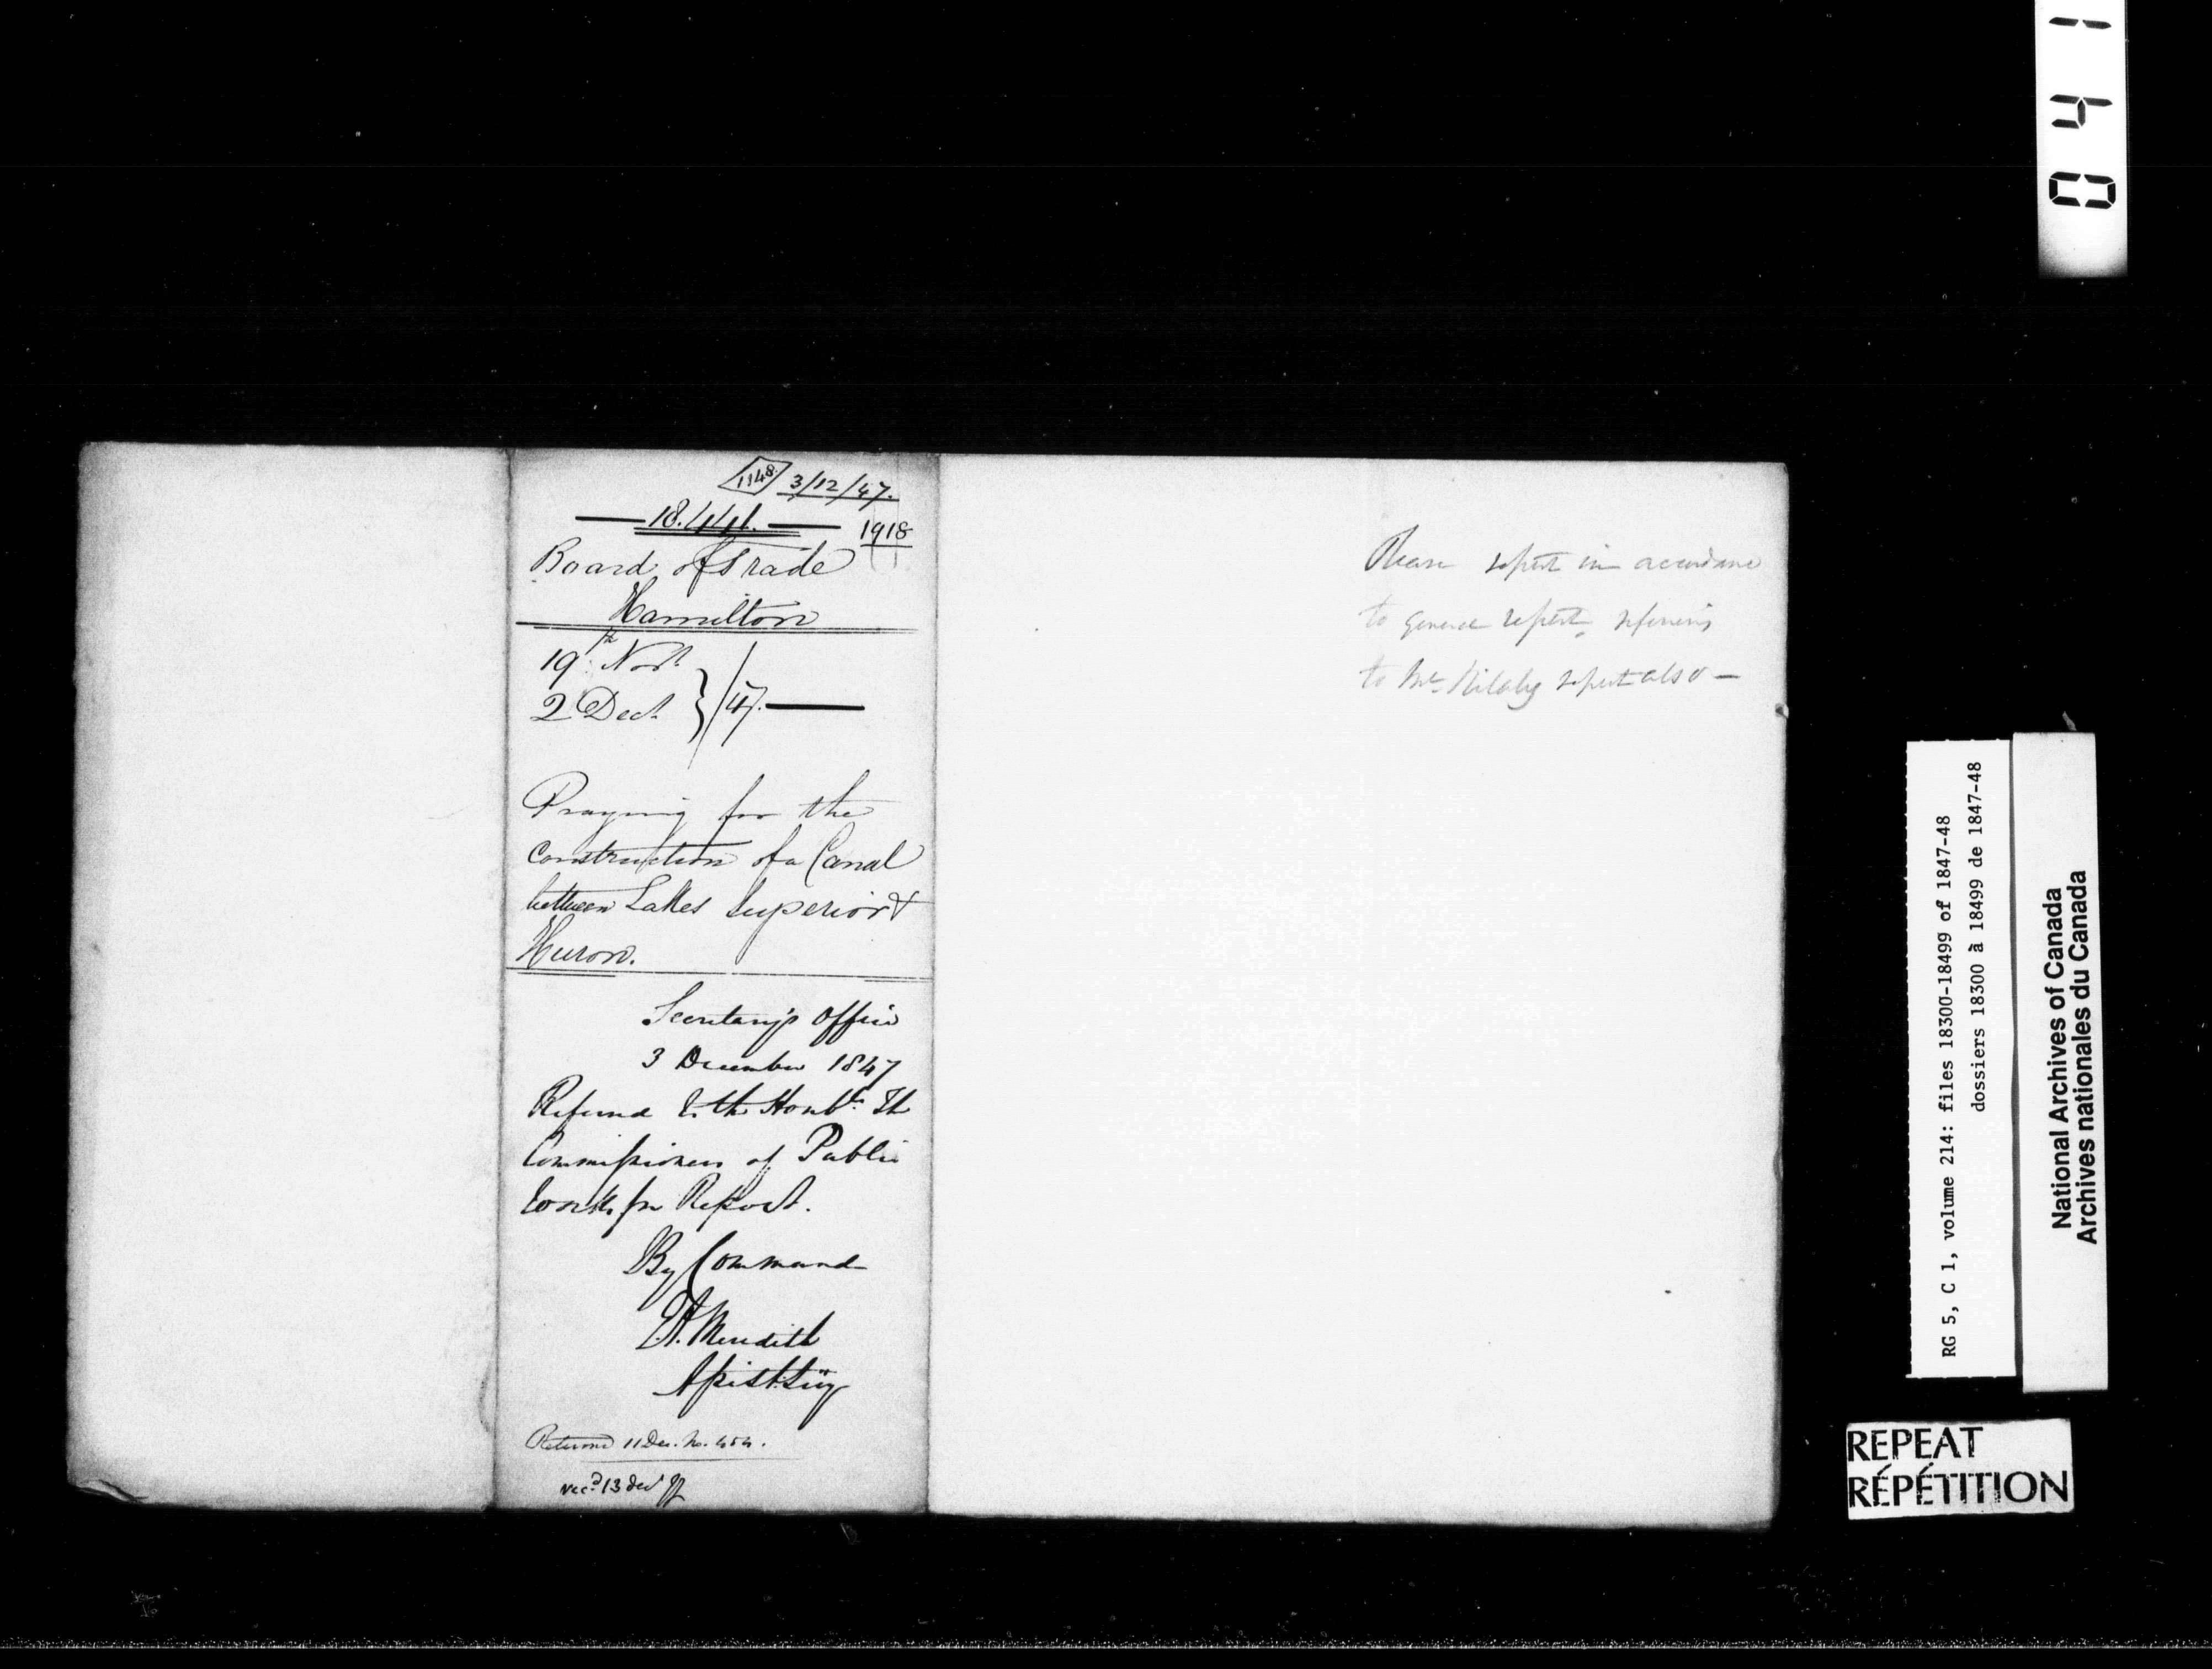 1148 3/12/47.
18.441.
1918
Board of Trade
Hamilton
19th Novr
2 Decr } /47.
Praying for the
Construction of a Canal
between Lakes Superior &
Huron.
Secretary's Office
3 December 1847
Referred to the Honble The
Commissioners of Public
Works for Report.
By Command
E.A. Meredith
Assist. Secy
Returned 11 Dec. No. 454.
Recd 13 Dec
Please report in accordance
to general report referring
to Mr Killaly report also —
041
RG 5, C 1, volume 214: files 18300-18499 of 1847-48
dossiers 18300 à 18499 de 1847-48
National Archives of Canada
Archives nationales du Canada
REPEAT
RÉPÉTITION